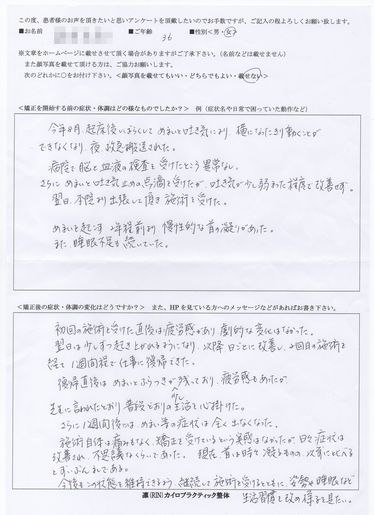 この度、患者様のお声を頂きたいと思いアンケートを頂戴したいのでお手数ですが、ご記入の程よろしくお願い致します。
■お名前 ■ご年齢 36 ■性別<男・女>
※文章をホームページに載せさせて頂く場合がありますがご了承下さい。(名前などは載せません)
また顔写真を載せて頂ける方は、ご協力お願いします。
次のどれかに○をお付け下さい。<顔写真を載せてもいい・どちらでもよい・載せない>
<矯正を開始する前の症状・体調はどの様なものでしたか?> 例(症状名や日常で困っていた動作など)
今年8月、起床後しばらくして めまいと吐き気により 横になったきり動くことが
できなくなり、夜、救急搬送された。
病院で脳と血液の検査を受けたところ異常なし。
さらに めまいと吐き気止めの点滴を受けたが、吐き気が少し弱まった程度で改善せず。
翌日、本院より出張して頂き 施術を受けた。
めまいを起こす 2年程前より 慢性的な首の凝りがあった。
また 睡眠不足も続いていた。
<矯正後の症状・体調の変化はどうですか?> また、HPを見ている方へのメッセージなどがあればお書き下さい。
初回の施術を受けた直後は疲労感があり 劇的な変化はなかった。
翌日は少しずつ起き上がれるようになり、以降 日ごとに改善し、2回目の施術を
経て 1週間程で仕事に復帰できた。
復帰直後は めまいとふらつきが少し残っており、疲労感もあったが
先生に言われたとおり 普段どおりの生活を心掛けた。
さらに1週間後には、めまい等の症状は全く出なくなった。
施術自体は痛みもなく、矯正を受けているという実感はなかったが 日々症状は
改善され、不思議なくらいであった。 現在、首は時々凝るものの 以前に比べると
ずいぶんましである。
今後もこの状態を維持できるよう、継続して施術を受けるとともに、姿勢や睡眠など
生活習慣も改め様と思いたい。
凛(RIN)カイロプラクティック整体